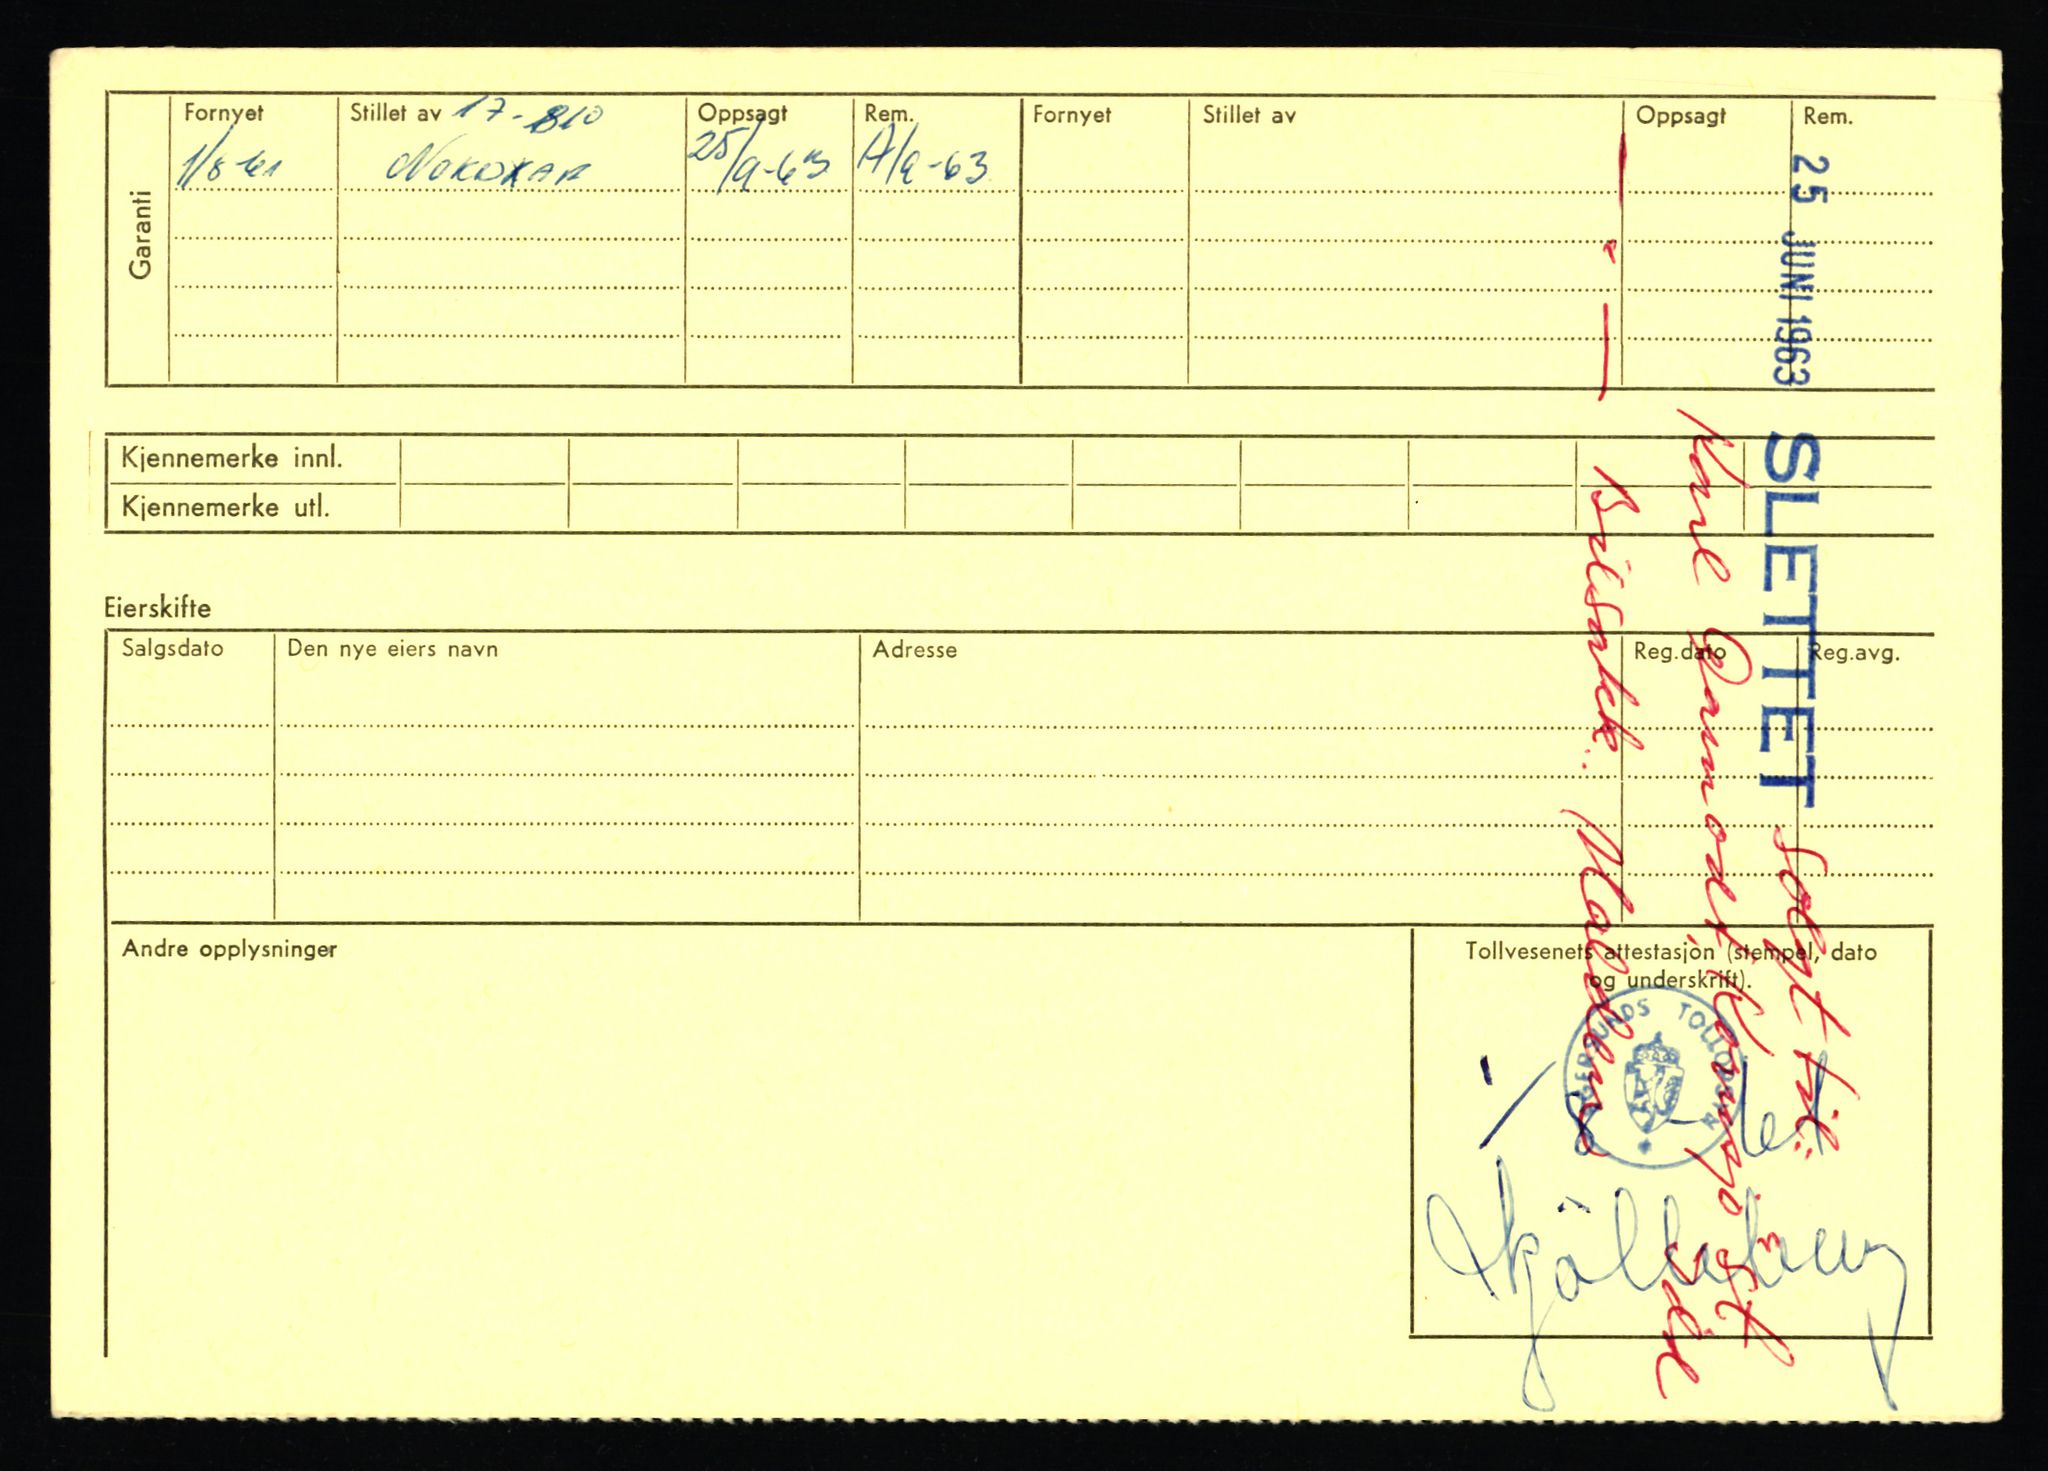 Garanti
Fornyet Stillet av 17-810 Oppsagt Rem. Fornyet Stillet av Oppsagt Rem.
1/8-61 NOKOXAR 25/9-63 A/9-63
25 JUNI 1963
SLETTET Solgt til:
Karl
Bilsakk.
Kjennemerke innl.
Kjennemerke utl.
Eierskifte
Salgsdato Den nye eiers navn Adresse Reg.dato Reg.avg.
Andre opplysninger
Tollvesenets attestasjon (stempel, dato
og underskrift).
EGERSUNDS TOLLDISTR